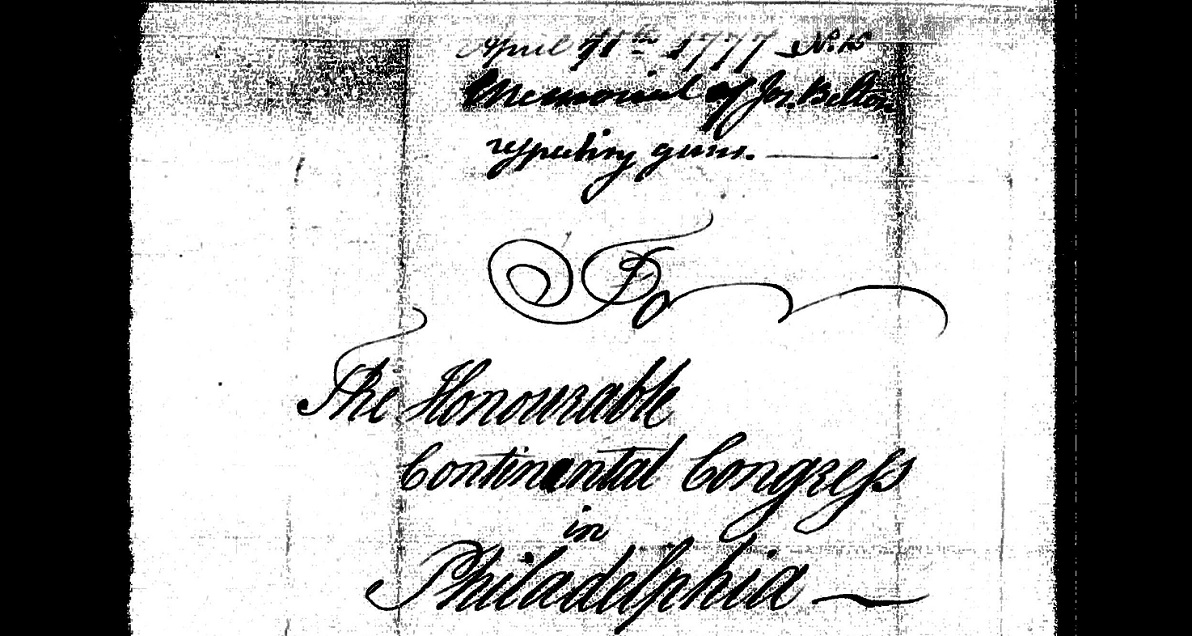 April 11th 1777
Memorial of Jos. Belton
respecting guns.
To
The Honourable
Continental Congress
in
Philadelphia